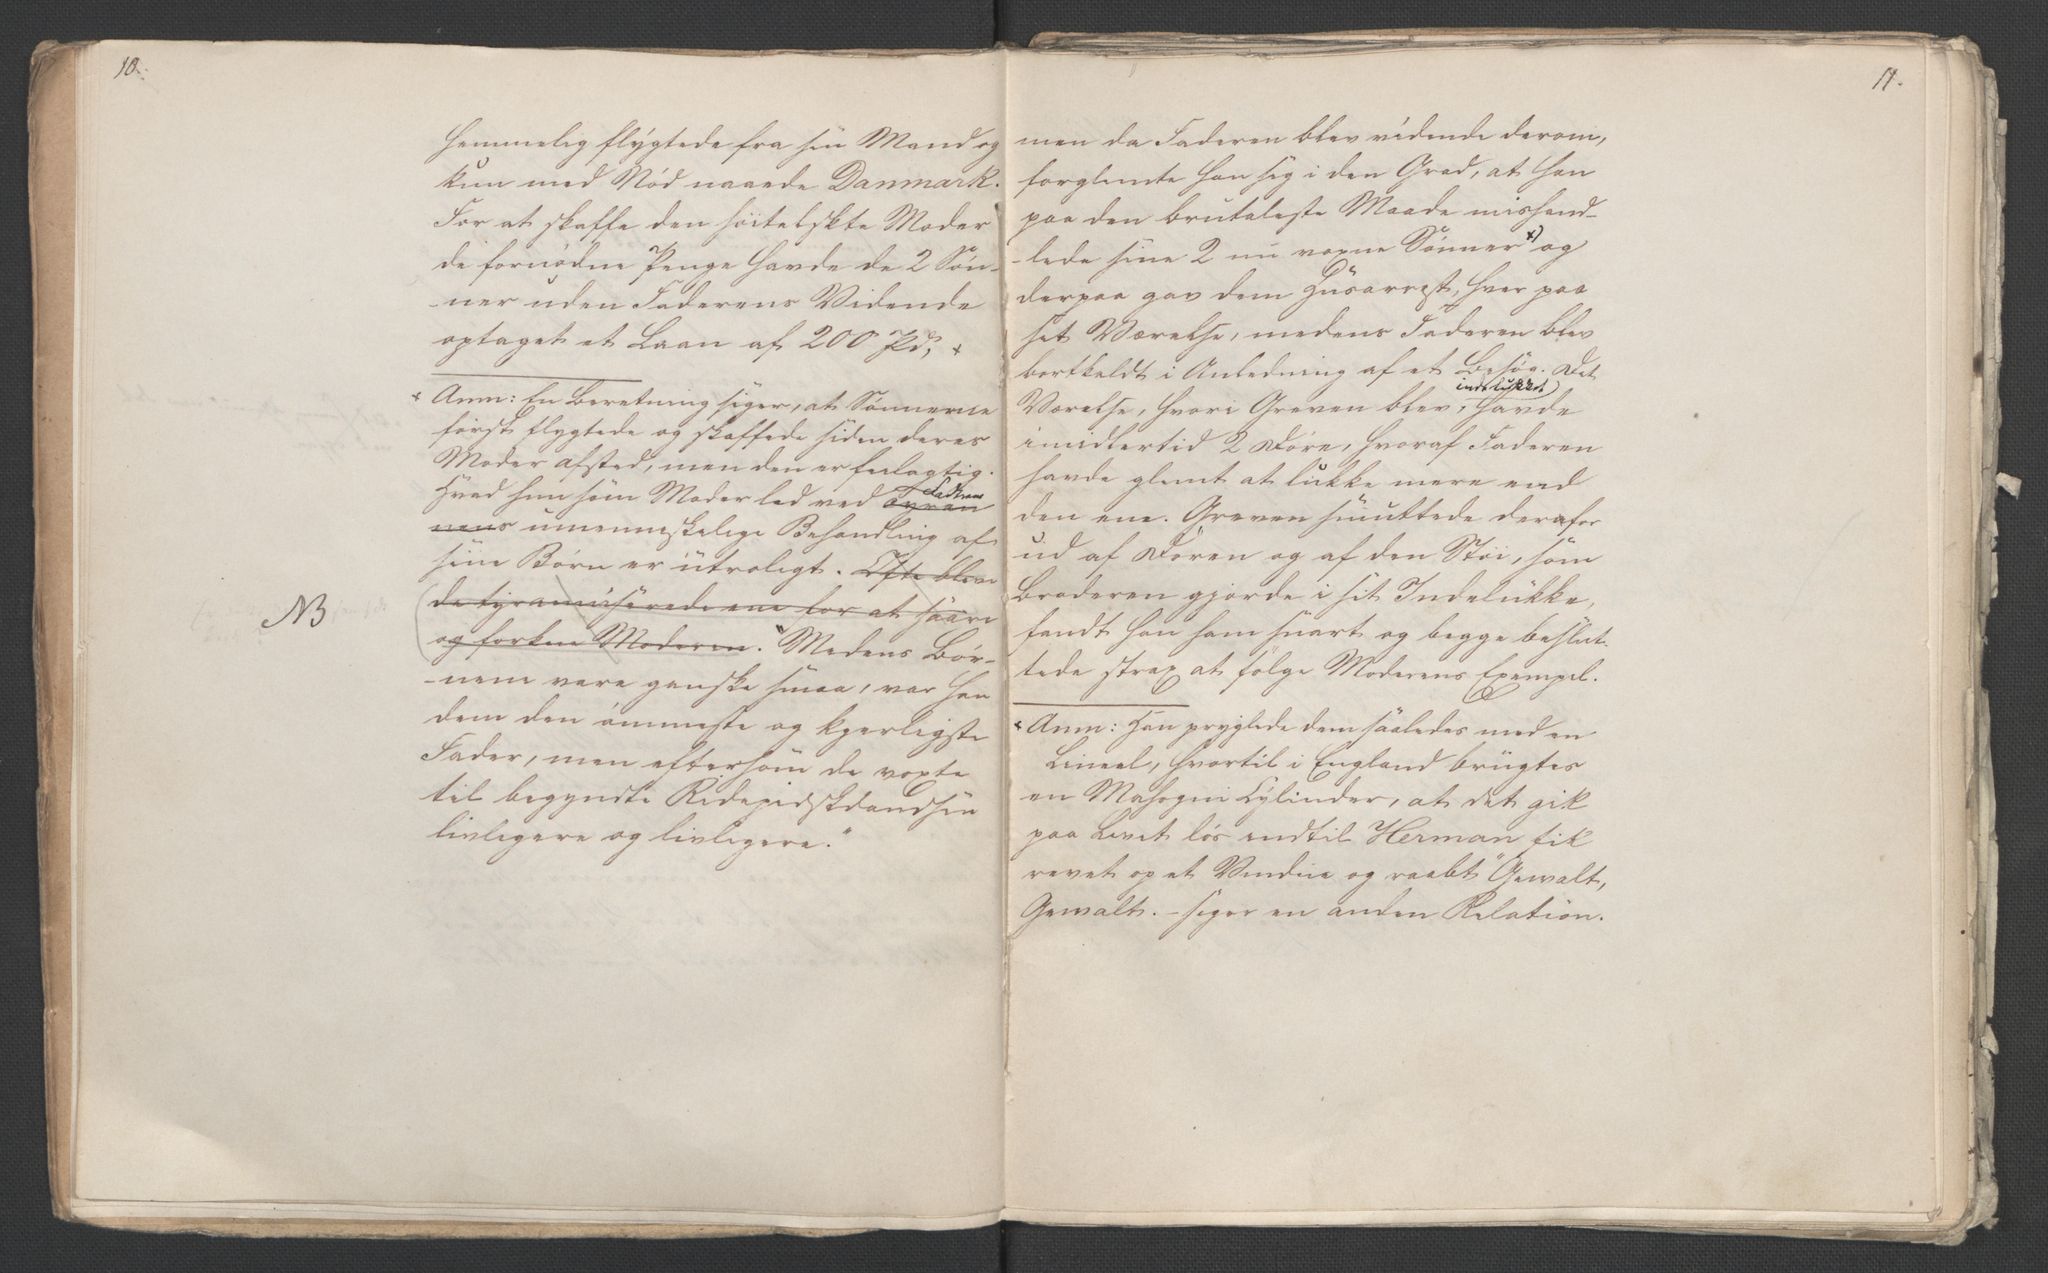 10.
hemmelig flygtede fra sin Mand og
kun med Nød naaede Danmark.
For at skaffe den höitelskte Moder
de fornødne Penge havde de 2 Søn-
-ner uden Faderens Vidende
optaget et Laan af 200 Pd, ×
× Anm: En Beretning siger, at Sønnerne
først flygtede og skaffede siden deres
Moder afsted, men den er feilagtig.
Hvad hun som Moder led ved Tyran Faderens
nens umenneskelige Behandling af
sine Børn er utroligt. Ofte bleve
NB
(de tyraniserede ene for at saare
og forkue Moderen. "Medens Bör-
-nem vare ganske smaa, var han
dem den ömmeste og kjerligste
Fader, men eftersom de voxte
til begyndte
livligere og livligere."
11.
men da Faderen blev vidende derom,
forglemte han sig i den Grad, at han
paa den brutaleste Maade mishand-
-lede sine 2 nu voxne Sønner ×) og
derpaa gav dem Husarrest, hver paa
sit Værelse, medens Faderen blev
bortkaldt i Anledning af et Besög. Det
indelukket)
Værelse, hvori Greven blev, havde
imidlertid 2 Döre, hvoraf Faderen
havde glemt at lukke mere end
den ene. Greven smuttede derfor
ud af Dören og af den Stöi, som
Broderen gjorde i sit Indelukke,
fandt han ham snart og begge beslut-
tede strax at følge Moderens Exempel.
× Anm: Han pryglede dem saaledes med en
Lineal, hvortil i England brugtes
en Mahogni Cylinder, at det gik
paa Livet lös indtil Herman fik
revet op et Vindue og raabt "Gewalt,
Gewalt. - siger en anden Relation.